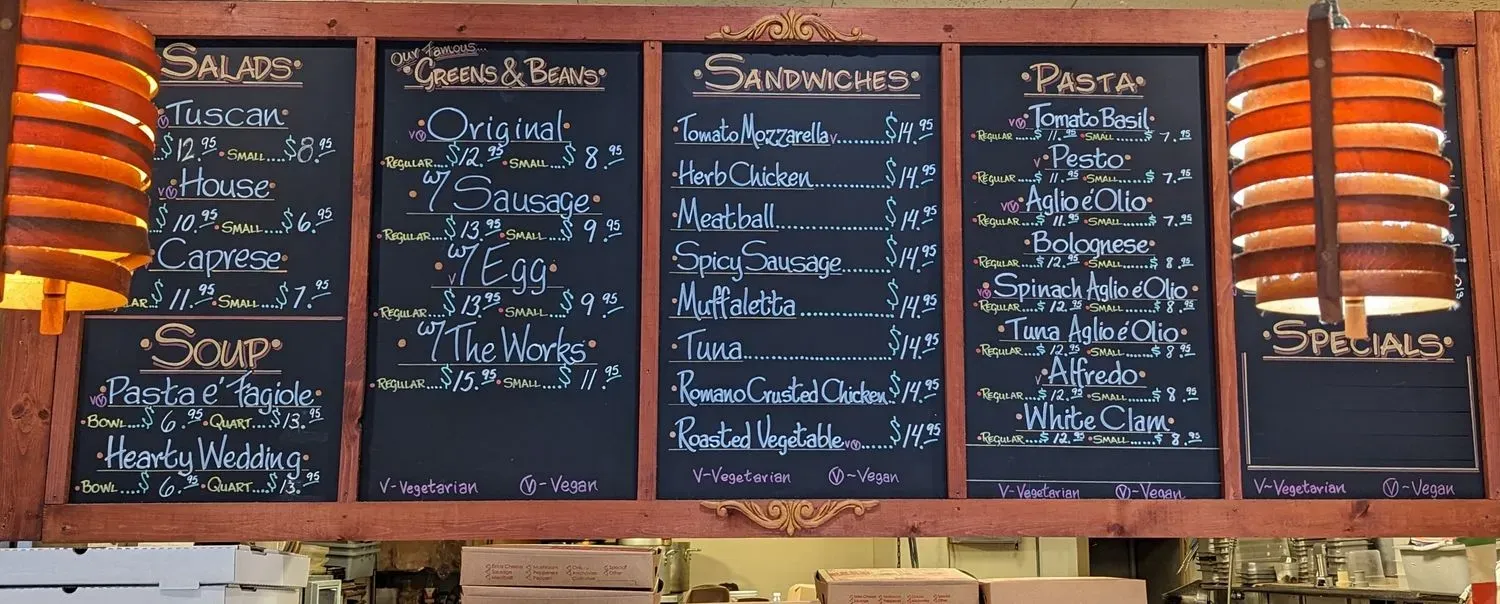 SALADS
VⓋ Tuscan
$12.95 SMALL...$8.95
VⓋ House
$10.95 SMALL....$6.95
Caprese
$11.95 SMALL...$7.95
SOUP
VⓋ Pasta é Fagiole
BOWL....$6.95 QUART....$13.95
Hearty Wedding
BOWL....$6.95 QUART....$13.95
Our Famous...
GREENS & BEANS
VⓋ Original
REGULAR....$12.95 SMALL....$8.95
w/ Sausage
REGULAR....$13.95 SMALL....$9.95
V w/ Egg
REGULAR....$13.95 SMALL....$9.95
w/ The Works
REGULAR....$15.95 SMALL....$11.95
V-Vegetarian Ⓥ-Vegan
SANDWICHES
Tomato Mozzarella V........$14.95
Herb Chicken............$14.95
Meatball..................$14.95
Spicy Sausage.......$14.95
Muffaletta..............$14.95
Tuna.......................$14.95
Romano Crusted Chicken.$14.95
Roasted Vegetable VⓋ.....$14.95
V-Vegetarian Ⓥ~Vegan
PASTA
VⓋ Tomato Basil
REGULAR....$11.95 SMALL......$7.95
V Pesto
REGULAR....$11.95 SMALL......$7.95
VⓋ Aglio é Olio
REGULAR....$11.95 SMALL......$7.95
Bolognese
REGULAR....$12.95 SMALL......$8.95
VⓋ Spinach Aglio é Olio
REGULAR....$12.95 SMALL......$8.95
Tuna Aglio é Olio
REGULAR....$12.95 SMALL......$8.95
V Alfredo
REGULAR....$12.95 SMALL......$8.95
White Clam
REGULAR....$12.95 SMALL......$8.95
V-Vegetarian Ⓥ-Vegan
SPECIALS
V~Vegetarian Ⓥ~Vegan